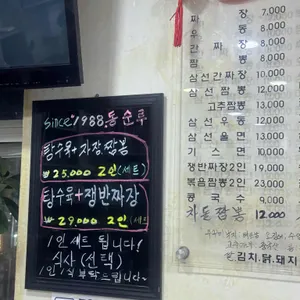 since 1988 동순루
탕수육+자장짬뽕
₩25,000 2인(세트)
탕수육+쟁반짜장
₩29,000 2인(세트
1인세트 됩니다!
식사(선택)
짜 장 7,000
우 동 8,000
간 짜 장 8,000
짬 뽕 8,000
삼선간짜장 10,000
삼선짬뽕 12,000
고추짬뽕 13,000
삼선우동 12,000
삼선울면 13,000
기스면 10,000
쟁반짜장2인 19,000
볶음짬뽕2인 23,000
콩국수 9,000
차돌짬뽕 12,000
김치,닭,돼지